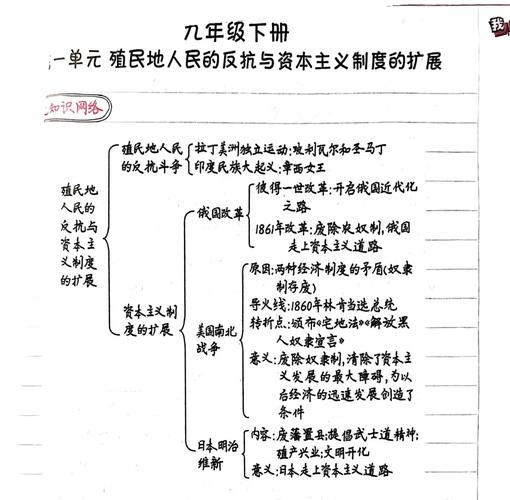 九年级下册
一单元 殖民地人民的反抗与资本主义制度的扩展
知识网络
殖民地
人民的
反抗与
资本主
义制度
的扩展
殖民地人民
的反抗斗争
拉丁美洲独立运动:玻利瓦尔和圣马丁
印度民族大起义:章西女王
资本主义制
度的扩展
俄国改革
彼得一世改革:开启俄国近代化
之路
1861年改革:废除农奴制,俄国
走上资本主义道路
美国南北
战争
原因:两种经济制度的矛盾(奴隶
制存废)
导火线:1860年林肯当选总统
转折点:颁布《宅地法》《解放黑
人奴隶宣言》
意义:废除奴隶制,清除了资本主
义发展的最大障碍,为以
后经济的迅速发展创造了
条件
日本明治
维新
内容:废藩置县;提倡武士道精神;
殖产兴业;文明开化
意义:日本走上资本主义道路
我